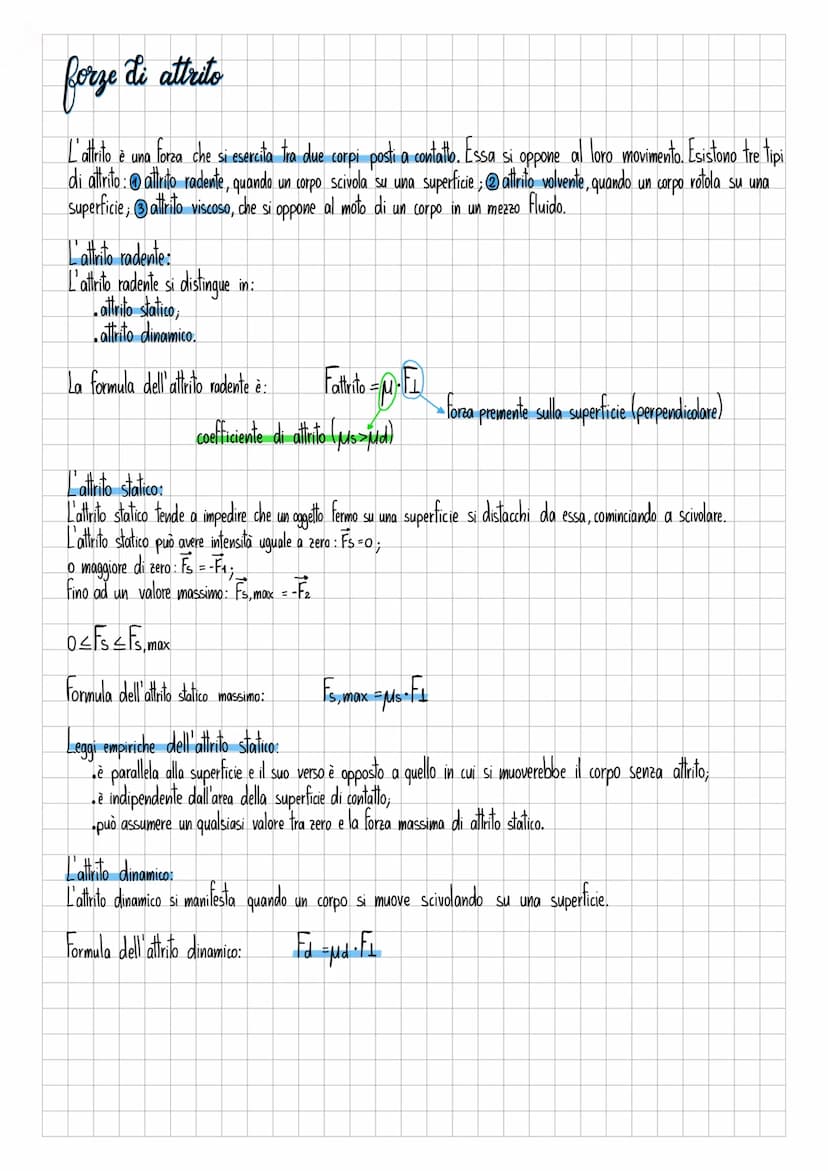 forze di attrito
L'attrito è una forza che si esercita tra due corpi posti a contatto. Essa si oppone al loro movimento. Esistono tre tipi
di attrito: 1 attrito radente, quando un corpo scivola su una superficie; 2 attrito volvente, quando un corpo rotola su una
superficie; 3 attrito viscoso, che si oppone al moto di un corpo in un mezzo fluido.
L'attrito radente:
L'attrito radente si distingue in:
• attrito statico;
• attrito dinamico.
La formula dell'attrito radente è: Fattrito = μ · F⊥
forza premente sulla superficie (perpendicolare)
coefficiente di attrito (μs>μd)
L'attrito statico:
L'attrito statico tende a impedire che un oggetto fermo su una superficie si distacchi da essa, cominciando a scivolare.
L'attrito statico può avere intensità uguale a zero: F⃗s=0;
o maggiore di zero: F⃗s = -F⃗1;
fino ad un valore massimo: F⃗s,max = -F⃗2
0≤Fs≤Fs,max
Formula dell'attrito statico massimo: Fs,max = μs · F⊥
Leggi empiriche dell'attrito statico:
• è parallela alla superficie e il suo verso è opposto a quello in cui si muoverebbe il corpo senza attrito;
• è indipendente dall'area della superficie di contatto;
• può assumere un qualsiasi valore tra zero e la forza massima di attrito statico.
L'attrito dinamico:
L'attrito dinamico si manifesta quando un corpo si muove scivolando su una superficie.
Formula dell'attrito dinamico: Fd = μd · F⊥